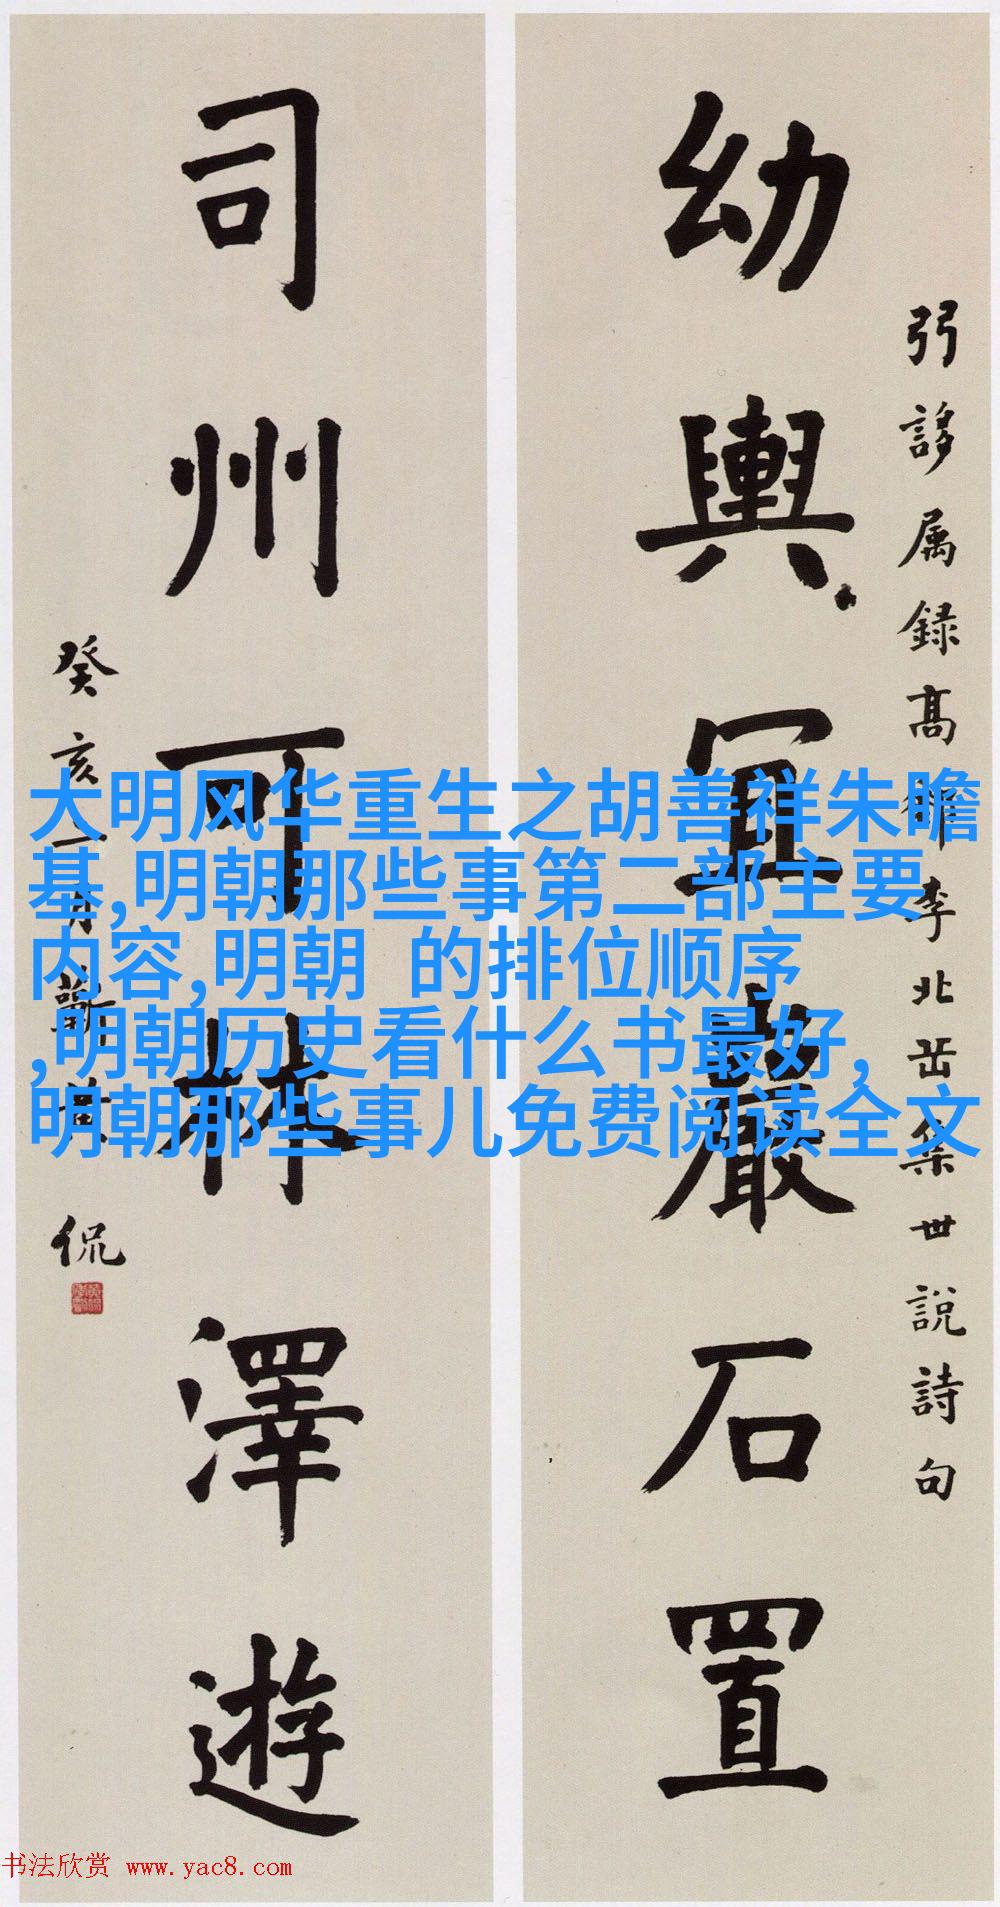 弜誃属録高邮李北苗集世説詩句
幼輿宜巖石置
司州可林澤遊
癸亥一月蘄黄侃
大明风华重生之胡善祥朱瞻
基,明朝那些事第二部主要
内容,明朝 的排位顺序
,明朝历史看什么书最好,
明朝那些事儿免费阅读全文
书法欣赏 www.yac8.com